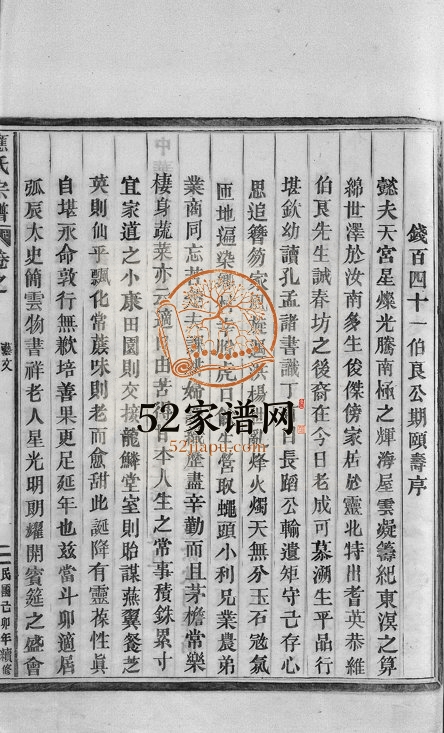 錢百四十一伯良公期頤壽序
懿夫天宮星燦光騰南極之輝海屋雲凝籌紀東溟之算
綿世澤於汝南多生俊傑傍家居於靈北特出耆英恭維
伯良先生誠春坊之後裔在今日老成可慕溯生平品行
堪欽幼讀孔孟諸書識丁 日長蹈公輸遺矩守己存心
思追簪笏家 揚世亂烽火燭天無分玉石寇氛
匝地逼染 生營取蠅頭小利兄業農弟
業商同忘苦 歷盡辛勤而且茅檐常樂
棲身蔬菜亦云適口由苦 日本人生之常事積銖累寸
宜家道之小康田園則交接龍鱗堂室則貽謀燕翼餐芝
英則仙乎飄化常蔗味則老而愈甜此誕降有靈葆性眞
自堪永命敦行無歉培善果更足延年也玆當斗卯適居
弧辰太史簡雲物書祥老人星光明期耀開賓筵之盛會
氏宗譜
藝文
民國己卯年續修
52家谱网
52jiapu.com